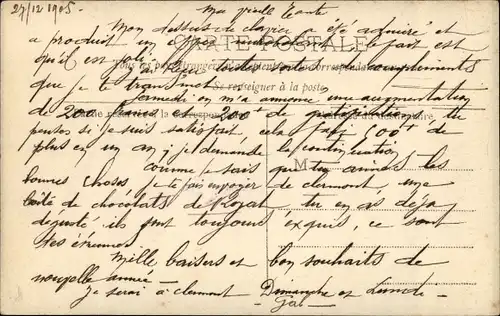 27/12 1905 - Ma vieille Tante
Mon dessus de clavier a été admiré et
a produit un effet le fait est
qu'il est joli j'ai reçu toutes sortes de compliments
que je te transmets
CARTE POSTALE
Tous les pays étrangers n'acceptent pas la correspondance
Se renseigner à la poste
Samedi on m'a annoncé une augmentation
de 200 francs et 300 f de gratification tu
penses si je suis satisfait cela fait 500 f de
plus en un an, je demande la continuation
M
comme je sais que tu aimes les
bonnes choses je te fais envoyer de clermont, une
boîte de chocolats de Royat tu en as déjà
dégusté ils sont toujours exquis, ce sont
tes étrennes
Mille baisers et bon souhaits de
nouvelle année -
Je serai à clermont Dimanche et Lundi -
Gab -